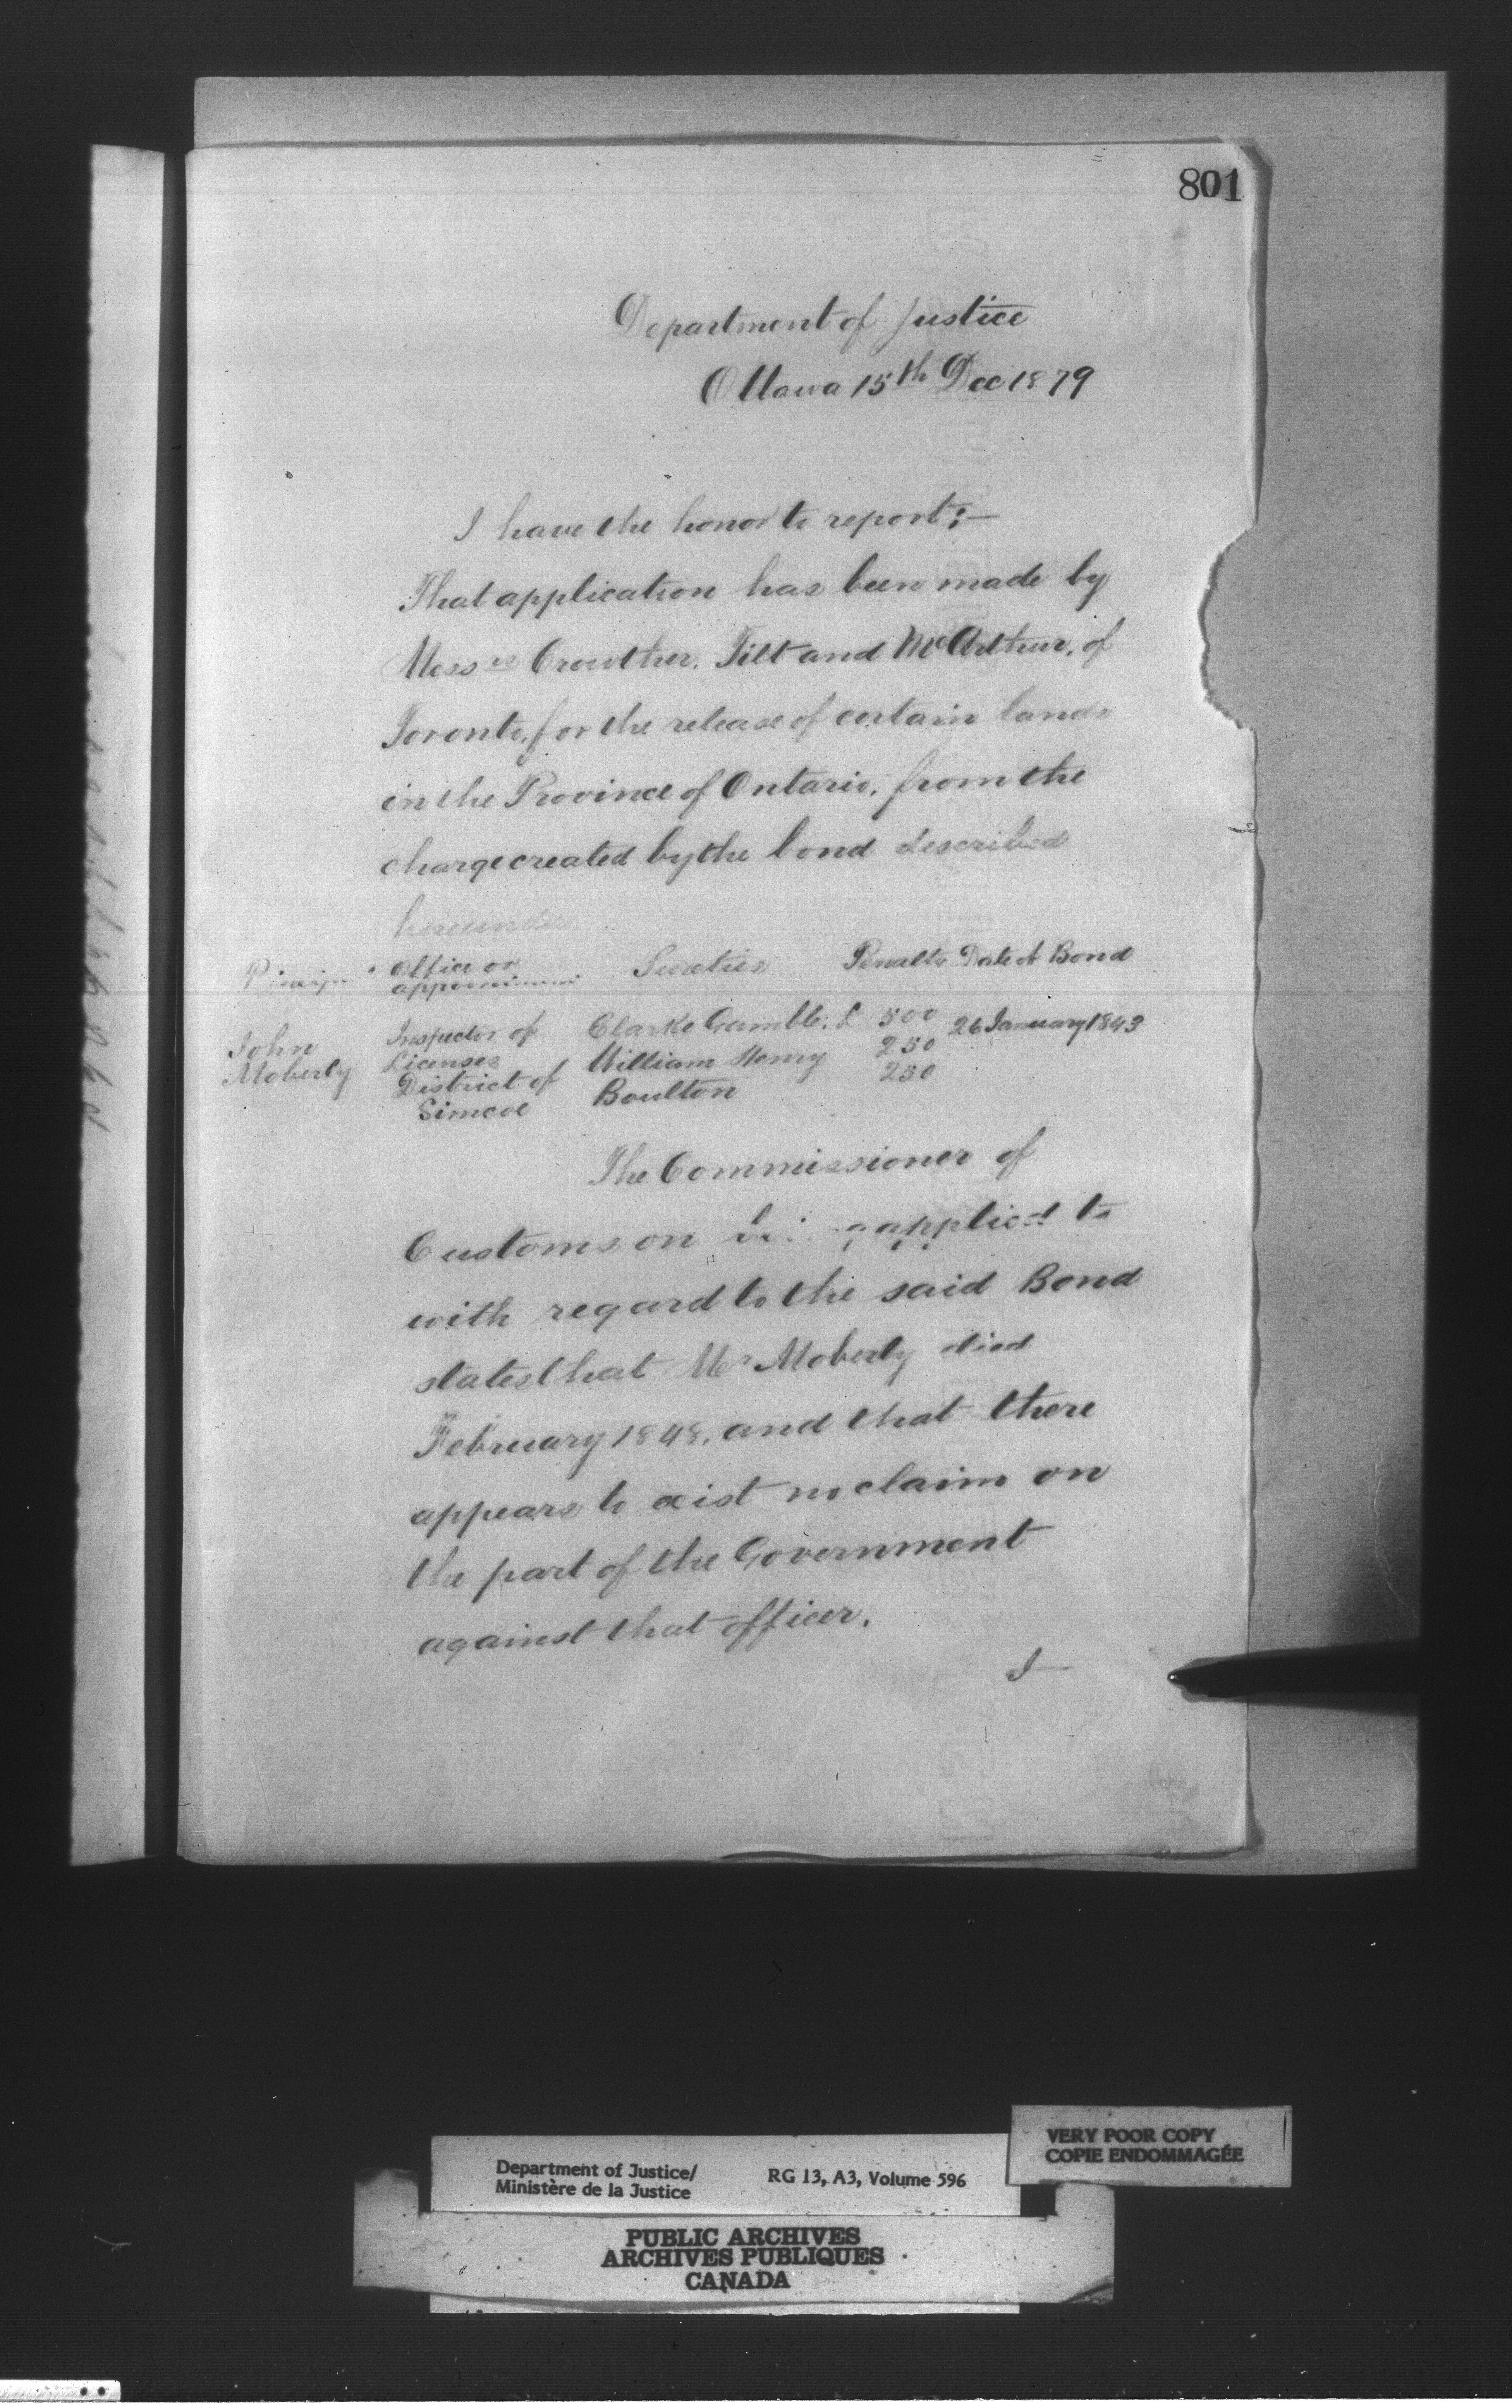 801
Department of Justice
Ottawa 15th Dec 1879
I have the honor to report:—
That application has been made by
Messrs Crowther, Tilt and McArthur, of
Toronto, for the release of certain lands
in the Province of Ontario, from the
charge created by the bond described
hereunder
Office or Sureties Penalty Date of Bond
John Inspector of Clarke Gamble. £ 500 26 January 1843
Moberly Licenses William Henry 250
District of Boulton 250
Simcoe
The Commissioner of
Customs on being applied to
with regard to the said Bond
states that Mr Moberly died
February 1848, and that there
appears to exist no claim on
the part of the Government
against that officer.
I—
VERY POOR COPY
COPIE ENDOMMAGÉE
Department of Justice/ RG 13, A3, Volume 596
Ministère de la Justice
PUBLIC ARCHIVES
ARCHIVES PUBLIQUES
CANADA